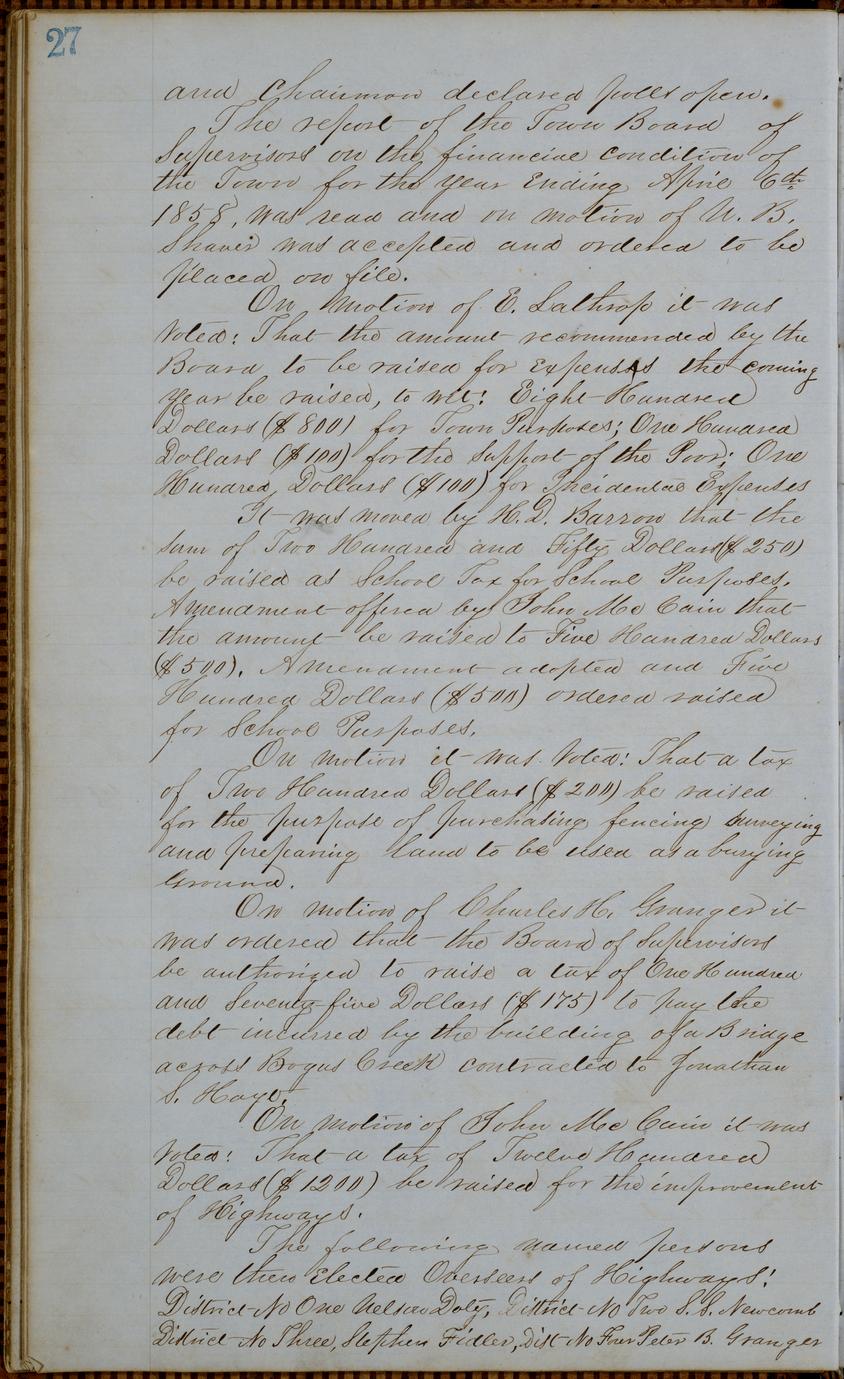 27
and Chairman declared polls open.
The report of the Town Board of
Supervisors on the financial condition of
the Town for the year Ending April 6th
1858, was read and on motion of U. B.
Shaver was accepted and ordered to be
placed on file.
On Motion of E. Lathrop it was
Voted: That the amount recommended by the
Board to be raised for Expenses the coming
year be raised, to wit: Eight Hundred
Dollars ($800) for Town Purposes; One Hundred
Dollars ($100) for the support of the Poor; One
Hundred Dollars ($100) for Incidental Expenses
It was moved by H. D. Barron that the
sum of Two Hundred and Fifty Dollars ($250)
be raised as School Tax for School Purposes.
Amendment offered by John Mc Cain that
the amount be raised to Five Hundred Dollars
($500). Amendment adopted and Five
Hundred Dollars ($500) ordered raised
for School Purposes.
On motion it was Voted: That a tax
of Two Hundred Dollars ($200) be raised
for the purpose of purchasing fencing surveying
and preparing land to be used as a burying
Ground.
On motion of Charles H. Granger it
was ordered that the Board of Supervisors
be authorized to raise a tax of One Hundred
and Seventy-five Dollars ($175) to pay the
debt incurred by the building of a Bridge
across Bogus Creek contracted to Jonathan
S. Hoyt.
On motion of John Mc Cain it was
Voted: That a tax of Twelve Hundred
Dollars ($1200) be raised for the improvement
of Highways.
The following named persons
were then Elected Overseers of Highways:
District No One Nelson Doty, District No Two S. S. Newcomb
District No Three, Stephen Fidler, Dist No Four Peter B. Granger